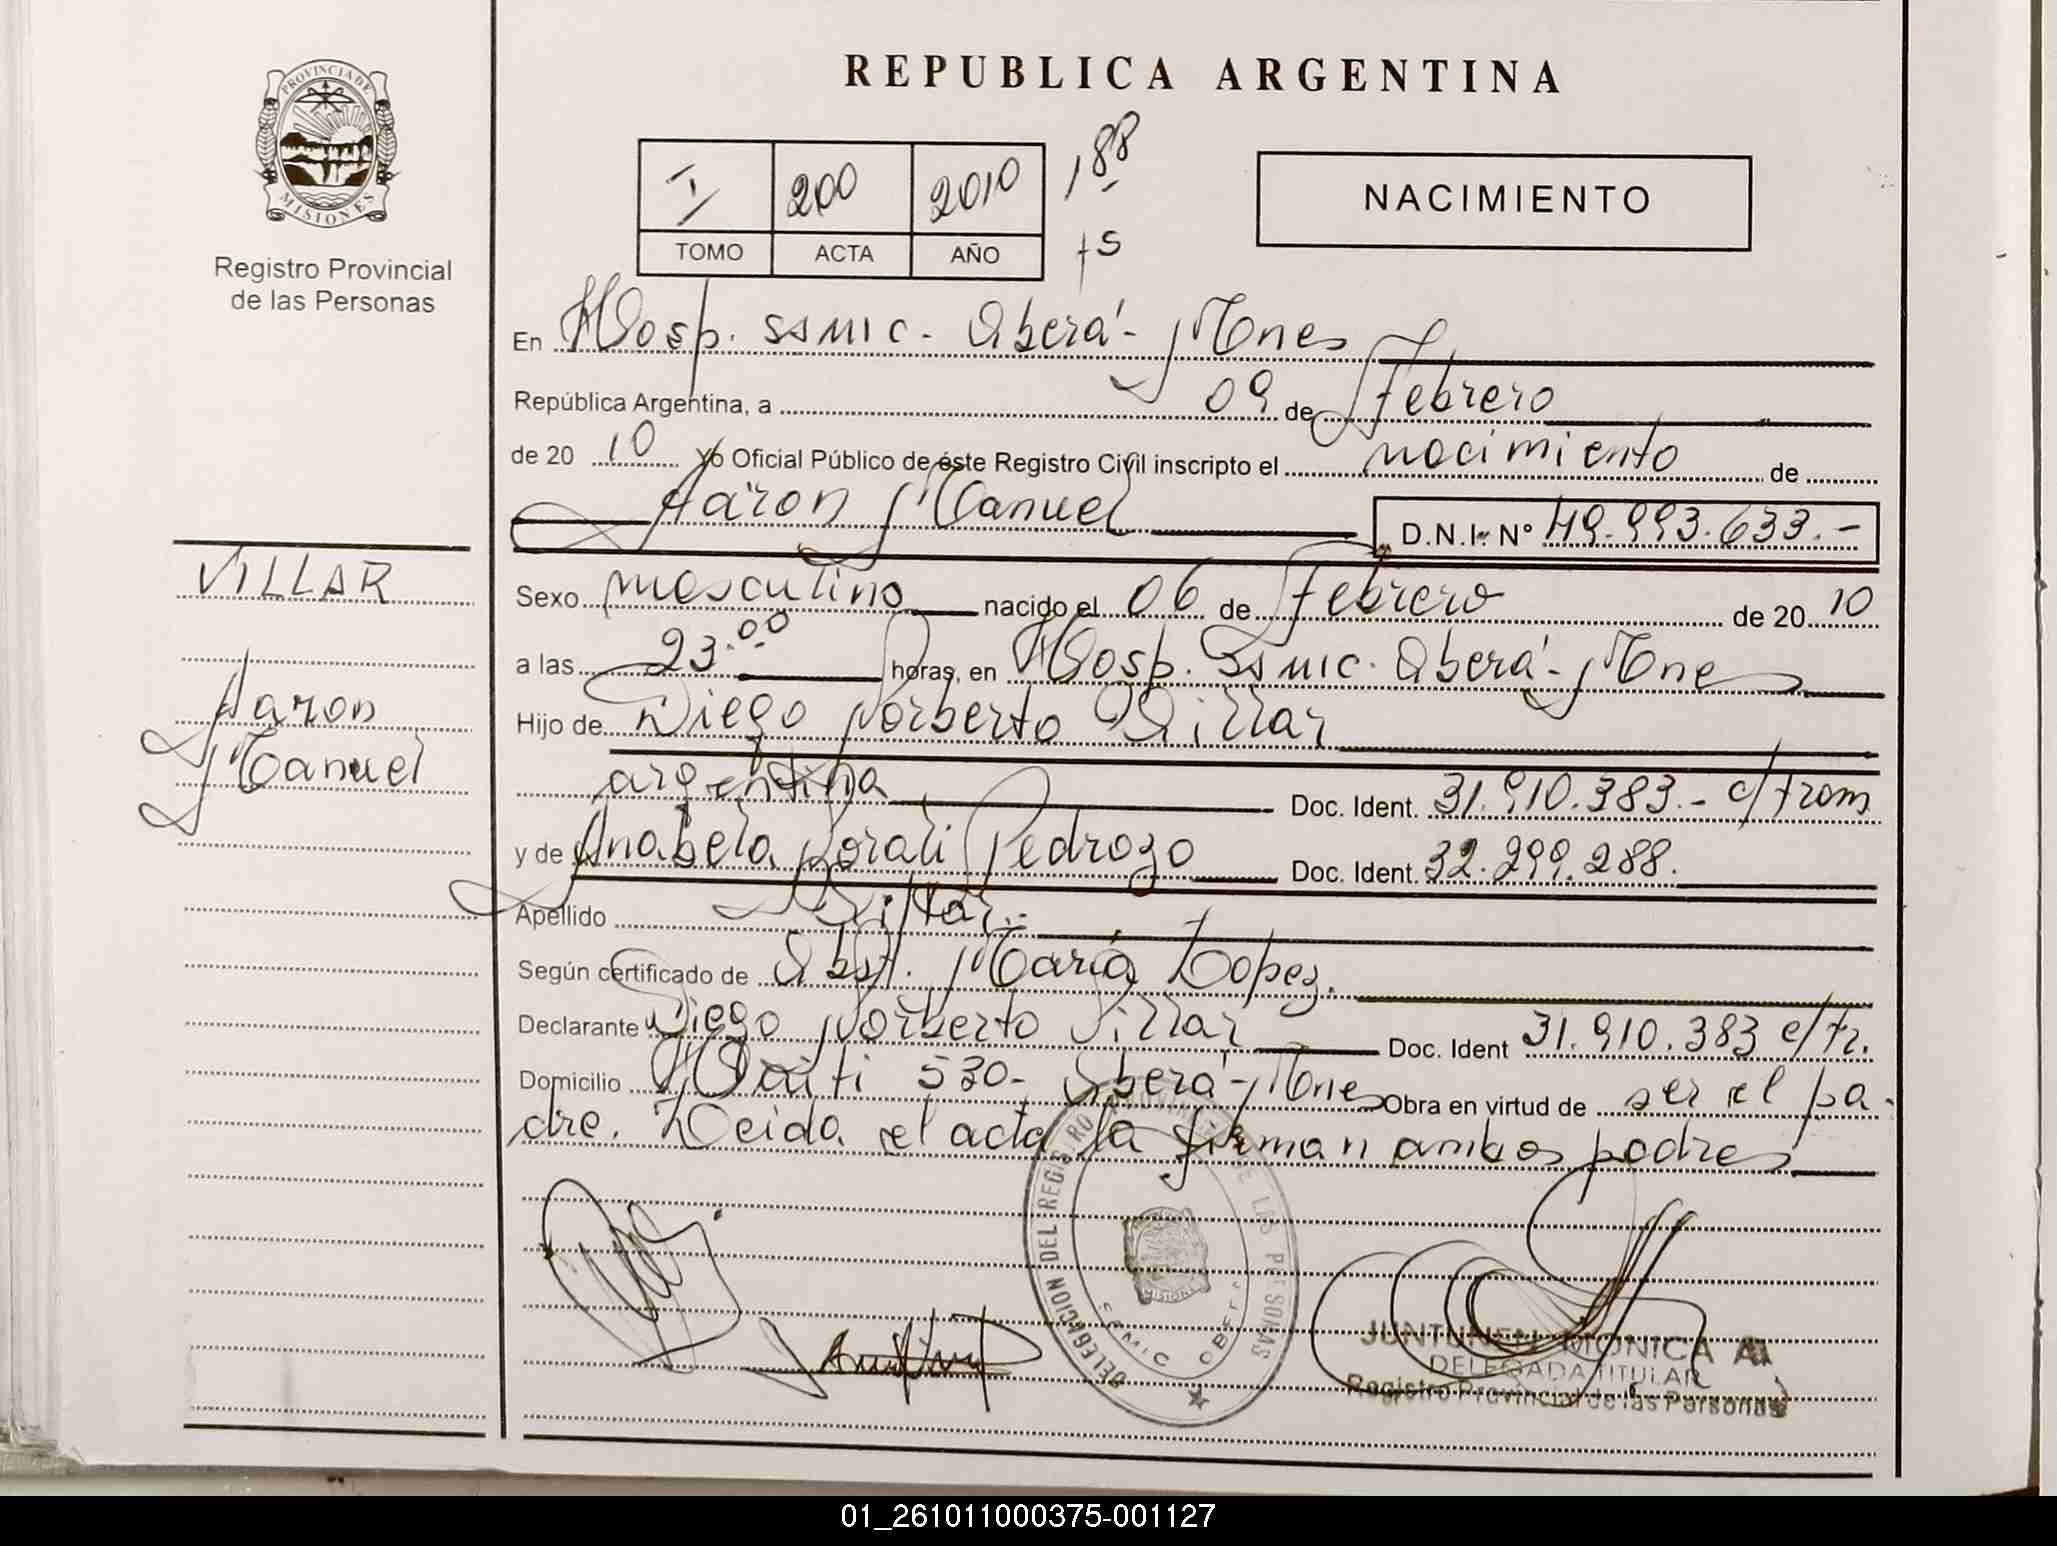 PROVINCIA DE
MISIONES
Registro Provincial
de las Personas
VILLAR
Aaron
Manuel
REPUBLICA ARGENTINA
I 200 2010 188
TOMO ACTA AÑO fs
NACIMIENTO
En Hosp. SSMIC. Oberá - Mnes
República Argentina, a 09 de Febrero
de 20 10 Yo Oficial Público de éste Registro Civil inscripto el nacimiento de
Aaron Manuel D.N.I. N° 49.993.633.-
Sexo masculino nacido el 06 de Febrero de 20 10
a las 23.00 horas, en Hosp. SSMIC. Oberá - Mnes
Hijo de Diego Norberto Villar
argentina Doc. Ident. 31.910.383.- c/tram
y de Anabela Norali Pedrozo Doc. Ident. 32.299.288.
Apellido Villar.-
Según certificado de Obst. María Lopez.
Declarante Diego Norberto Villar Doc. Ident 31.910.383 c/tr.
Domicilio Haiti 530- Oberá - Mnes Obra en virtud de ser el pa-
dre. Leida el acta la firman ambos padres
DELEGACION DEL REGISTRO PROVINCIAL DE LAS PERSONAS
MISIONES
SAMIC OBERA
JUNTUNEN MONICA A.
DELEGADA TITULAR
Registro Provincial de las Personas
01_261011000375-001127